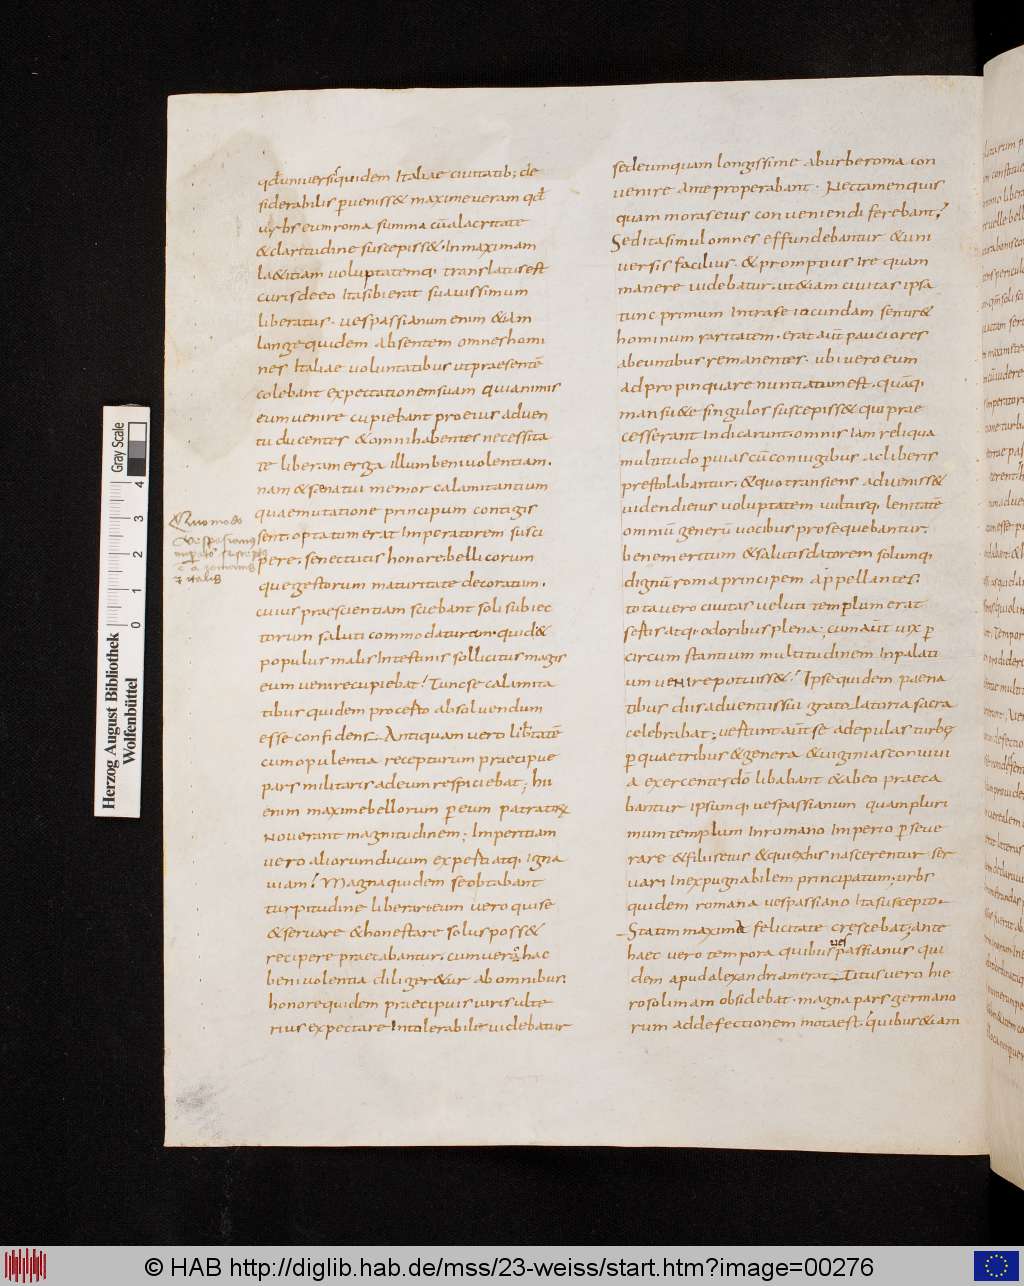 qđ universiquidem Italiae ciuitatib; de
siderabilis puenisset maximeueram qđ
urbs eum roma summa cū alacritate
& claritudine suscepisset. In maximam
lætitiam uoluptatemq; translatus est
curis deeo Ita sibi erat suauissimum
liberatus. uespassianum enim etiam
longe quidem absentem omnes homi
nes Italiae uoluntatibus ut praesentē
colebant expectationem suam quia nimis
eum uenire cupiebant pro eius aduen
tu ducentes & omni habentes necessita
te liberam erga illum beniuolentiam.
nam & senatui memor calamitantium
quae mutatione principum contigis
sent. optatum erat Imperatorem susci
pere. senectutis honore. bellicorum
que gestorum maturitate decoratum.
cuius praescientiam sciebant soli subiec
torum saluti commodaturam. quid&
populus malis Intestinis sollicitus magis
eum uenire cupiebat! Tunc se calamita
tibus quidem pro certo absoluendum
esse confidens. Antiquam uero libtatē
cum opulentia recepturum praecipue
pars militaris adeum respiciebat; hii
enim maxime bellorum p eum patratorum
Nouerant magnitudinem. Imperitiam
uero aliorum ducum experti atq; Igna
uiam! Magna quidem se obtabant
turpitudine liberari. eum uero qui se
& seruare & honestare solus posset
recipere praetabantur. cum uero hac
beniuolentia diligeretur ab omnibus.
honore quidem praecipuis uiris ulte
rius expectare Intolerabile uidebatur
sed eum quam longissime ab urbe roma con
uenire ante properabant. Nec tamen quis
quam moras eius conueniendi ferebant!
Sed ita simul omnes effundebantur & uni
uersis facilius. & promptius Ire quam
manere uidebatur. ut etiam ciuitas ipsa
tunc primum Intra se iucundam sentiret
hominum raritatem. erat aūt pauciores
abeuntibus remanentes. ubi uero eum
adpropinquare nuntiatum est. quāq;
mansuete singulos suscepisset qui prae
cesserant Indicarunt. omnis Iam reliqua
multitudo p uias cū coniugibus ac liberis
prestolabantur. & quo transiens aduenisset
uidendi eius uoluptatem uultusq; lenitatē
omniū generū uocibus prosequebantur.
benemeritum & salutis datorem solumq;
dignū roma principem appellantes.
tota uero ciuitas ueluti templum erat
sertis atq; odoribus plena; cum aūt uix p
circumstantium multitudinem In palati
um ueNire potuisset! Ipse quidem paena
tibus diis aduentus sui gratolatoria sacra
celebrabat; uertunt aūt se ad epulas turbę
p quae tribus & genera & uiginias conuiui
a exercentes dō libabant & ab eo praeca
bantur ipsumq; uespassianum quam pluri
mum templum In romano Imperio pseue
rare & filius eius & qui ex his nascerentur ser
uari Inexpugnabilem principatum; urbs
quidem romana uespassiano Ita suscepto.
Statim maxime felicitate crescebat; ante
haec uero tempora quibus uespassianus qui
dem apud alexandriam erat. Titus uero hie
rosolimam obsidebat. magna pars germano
rum ad defectionem mota est. quibus etiam
Quomodo
Vespesianus
Herzog August Bibliothek
Wolfenbüttel
Gray Scale
0 1 2 3 4
© HAB http://diglib.hab.de/mss/23-weiss/start.htm?image=00276